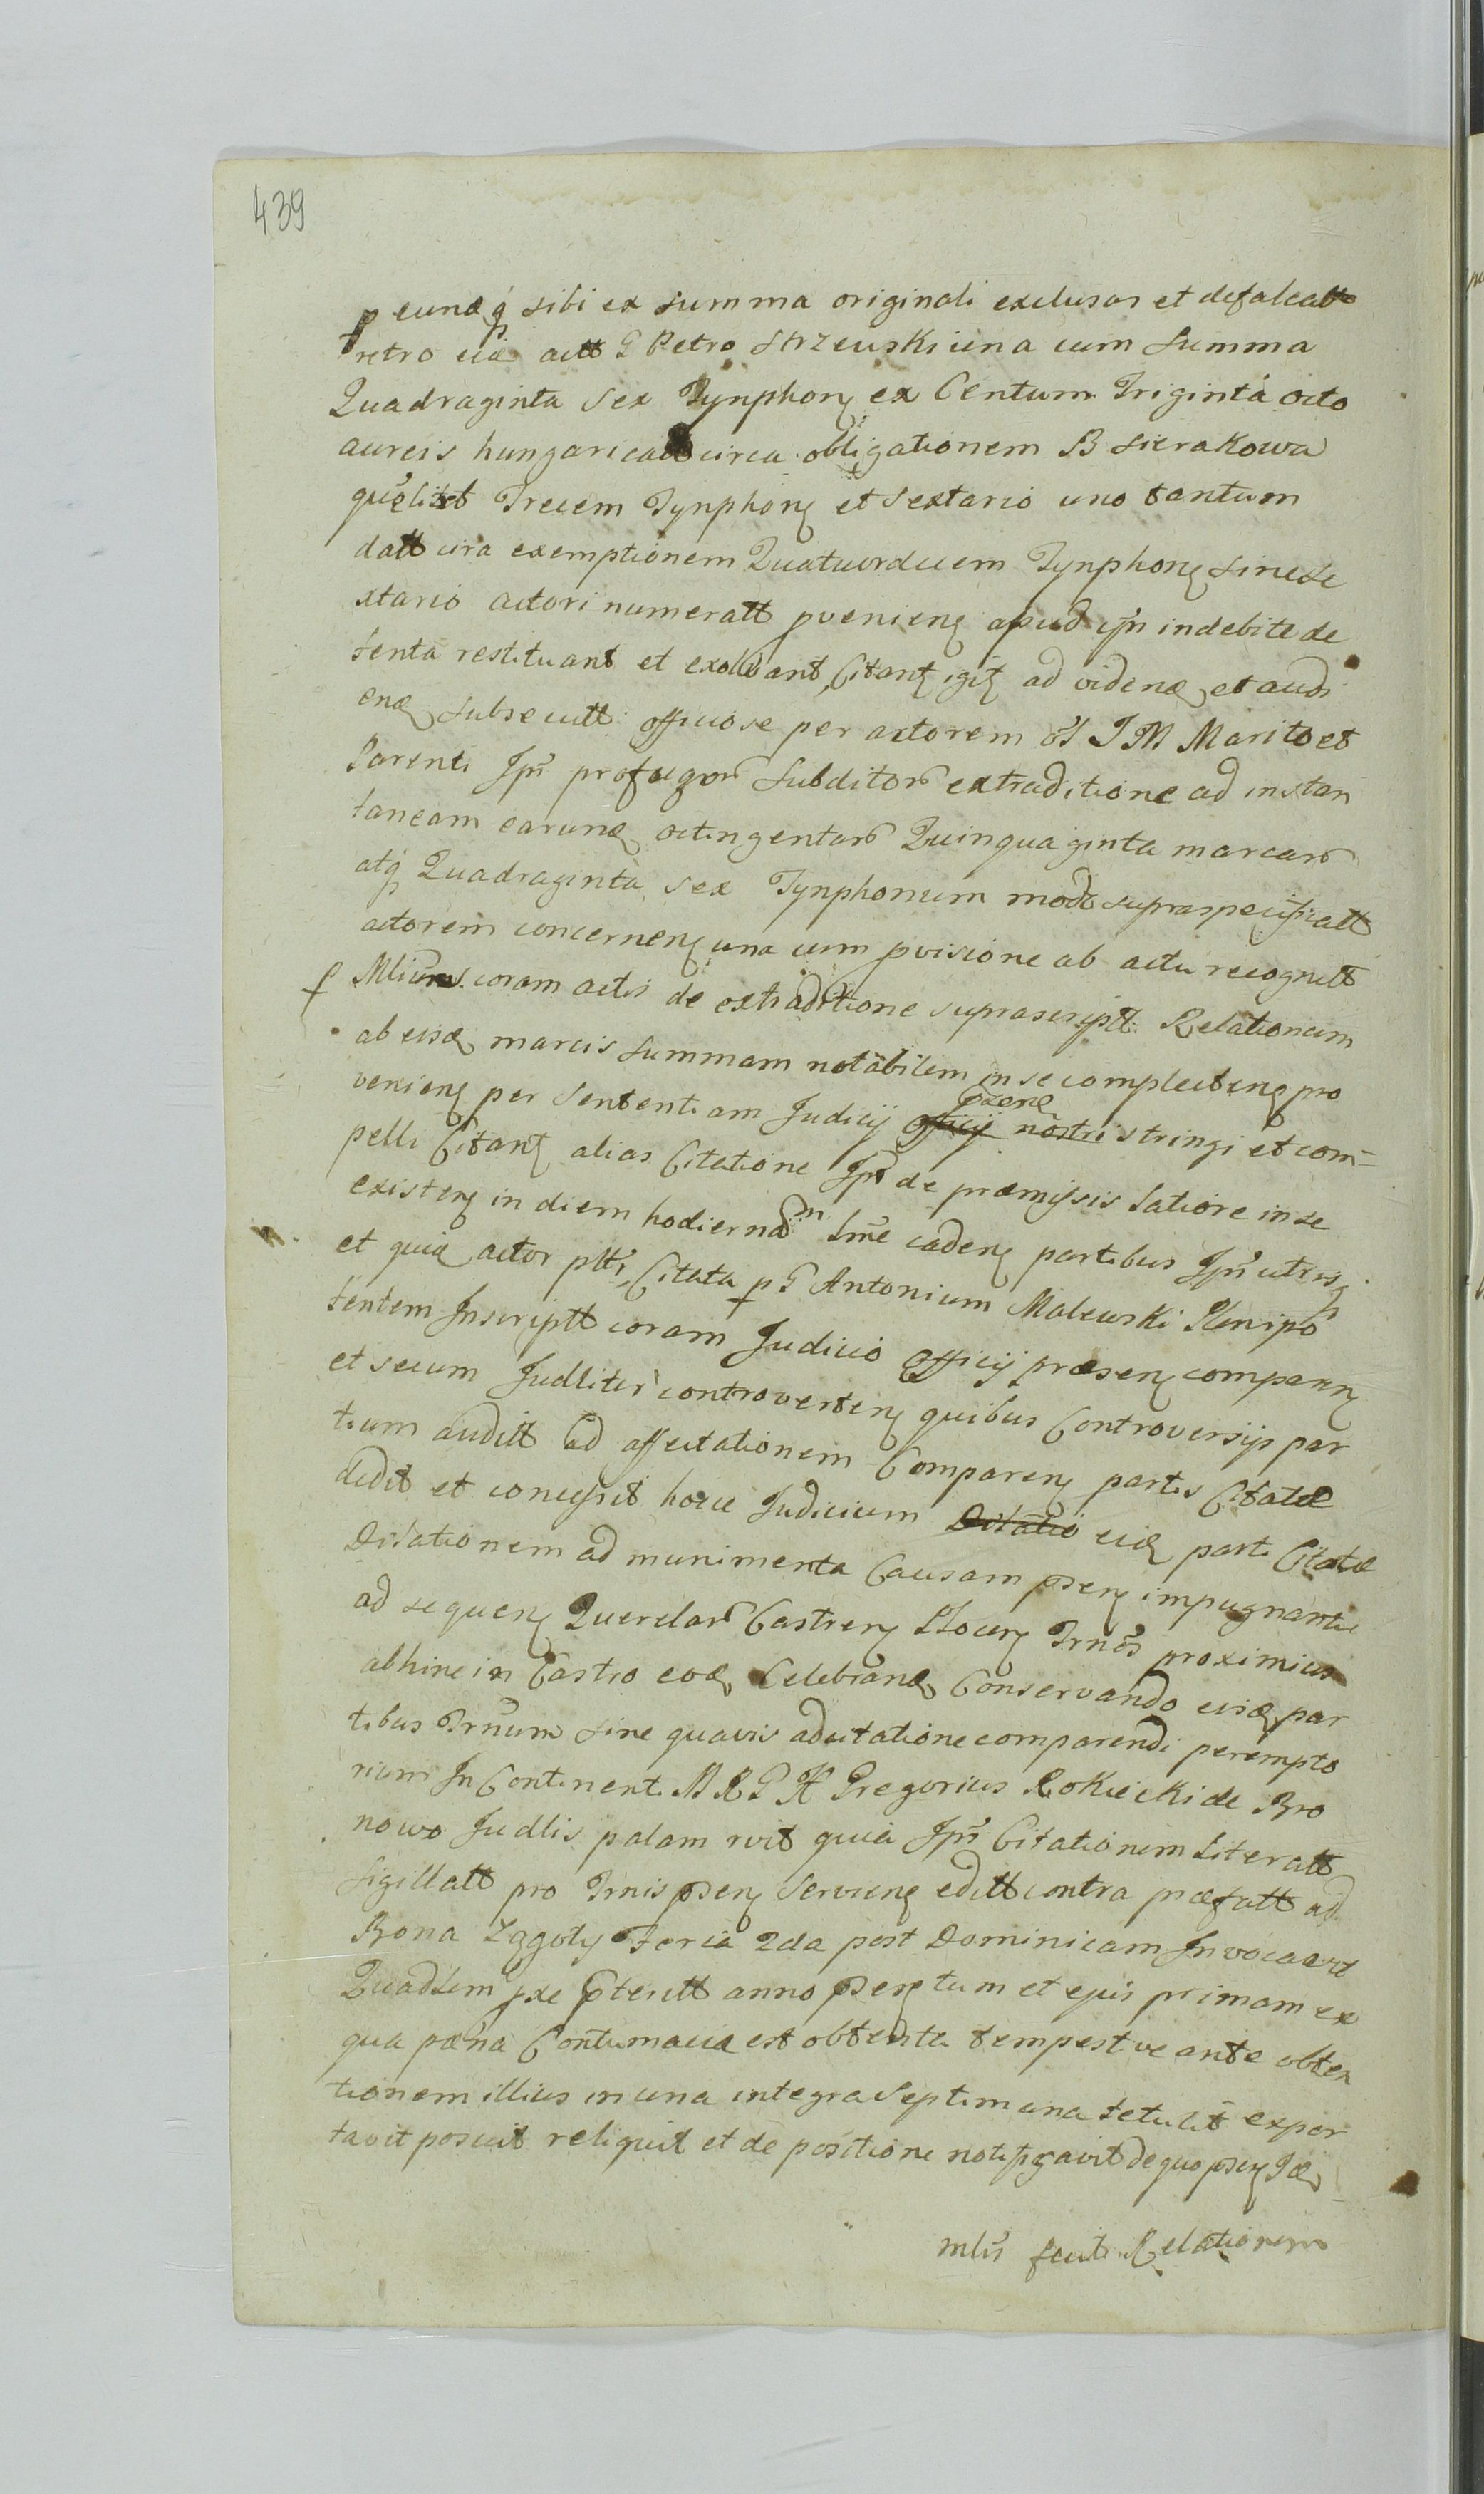 439
p eundq sibi ex summa originali exclusas et defalcatt
retro eid actt G Petro Strzeuski una cum Summa
Quadraginta Sex Tynphon ex Centum Triginta octo
aureis hungaricatt circa obligationem B Sierakowa
qualitet Trecem Tynphon et Sextario uno tantum
datt circa exemptionem Quatuordecem Tynphon sine Se
xtario actori numeratt pvenien apud ipn indebite de
tenta restituant et exolvant, Citant igit ad videnд et audi
end Subsecutt officiose per actorem ol J M Marito et
Parenti Jpn profugor Subditor extraditione ad instan
taneam earund octingentar Quinquaginta marcar
atq Quadraginta Sex Tynphonum modo supraspecificatt
actorem concernen una cum pvisione ab actu recognitt
p Mlium coram actis de extraditione suprascriptt Relationum
ab eisd marcis Summam notabilem in se complecten pro
venien per Sententiam Judicij officij nostri stringi et com=
pelli Citant alias Citatione Jpn de præmissis latiore in se
existen in diem hodiernam Trne caden partibus Jpn utrisq
et quia actor pltr, Citata p G Antonium Malewski Plenipo
tentem Inscriptt coram Judicio Officij præsen comparen
et secum Judliter controverten quibus Controversijs par
tium auditt ad affectationem Comparen partis Citatæ
dedit et concessit hocce Judicium Dilatio eid parti Citatæ
Dilationem ad munimenta Causam psen impugnantia
ad sequen Querelar Castren Plocen Trnos proximius
abhinc in Castro eod Celebrand Conservando eisd par
tibus Trnum sine quavis adcitatione comparendi perempto
rium In Continenti M R G K Gregorius Rokicki de Bro
nowo Judlis palam rvit quia Jpn Citationem Literatt
Sigillatt pro Trnis psen Servien editt contra præfatt ad
Bona Zągoty Feria 2da post Dominicam Invocavit
Quadlem pxe pteritt anno psen tum et ejus primam ex
qua pæna Contumacia est obtenta tempestive ante obten
tionem illius in una integra Septimana tetulit expor
tavit posuit reliquit et de positione notificavit de quo psen Id
mlis fecit Relationem